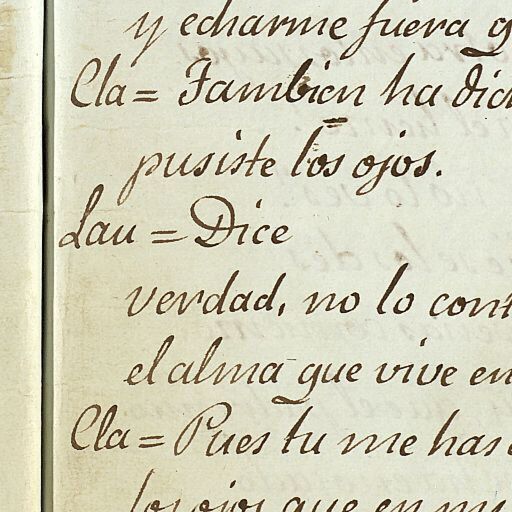 y echarme fuera
Cla= Tambien ha
pusiste los ojos.
Lau = Dice
verdad, no lo
el alma que vive en
Cla= Pues tu me has
los ojos que en